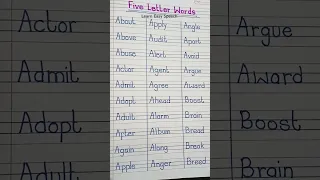 Five Letter Words
Learn Easy Speech
About Apply Angle
Above Audit Apart
Abuse Alert Avoid
Actor Agent Argue
Admit Agree Award
Adopt Ahead Boost
Adult Alarm Brain
After Album Bread
Again Along Break
Apple Anger Breed
Actor
Admit
Adopt
Adult
Argue
Award
Boost
Brain